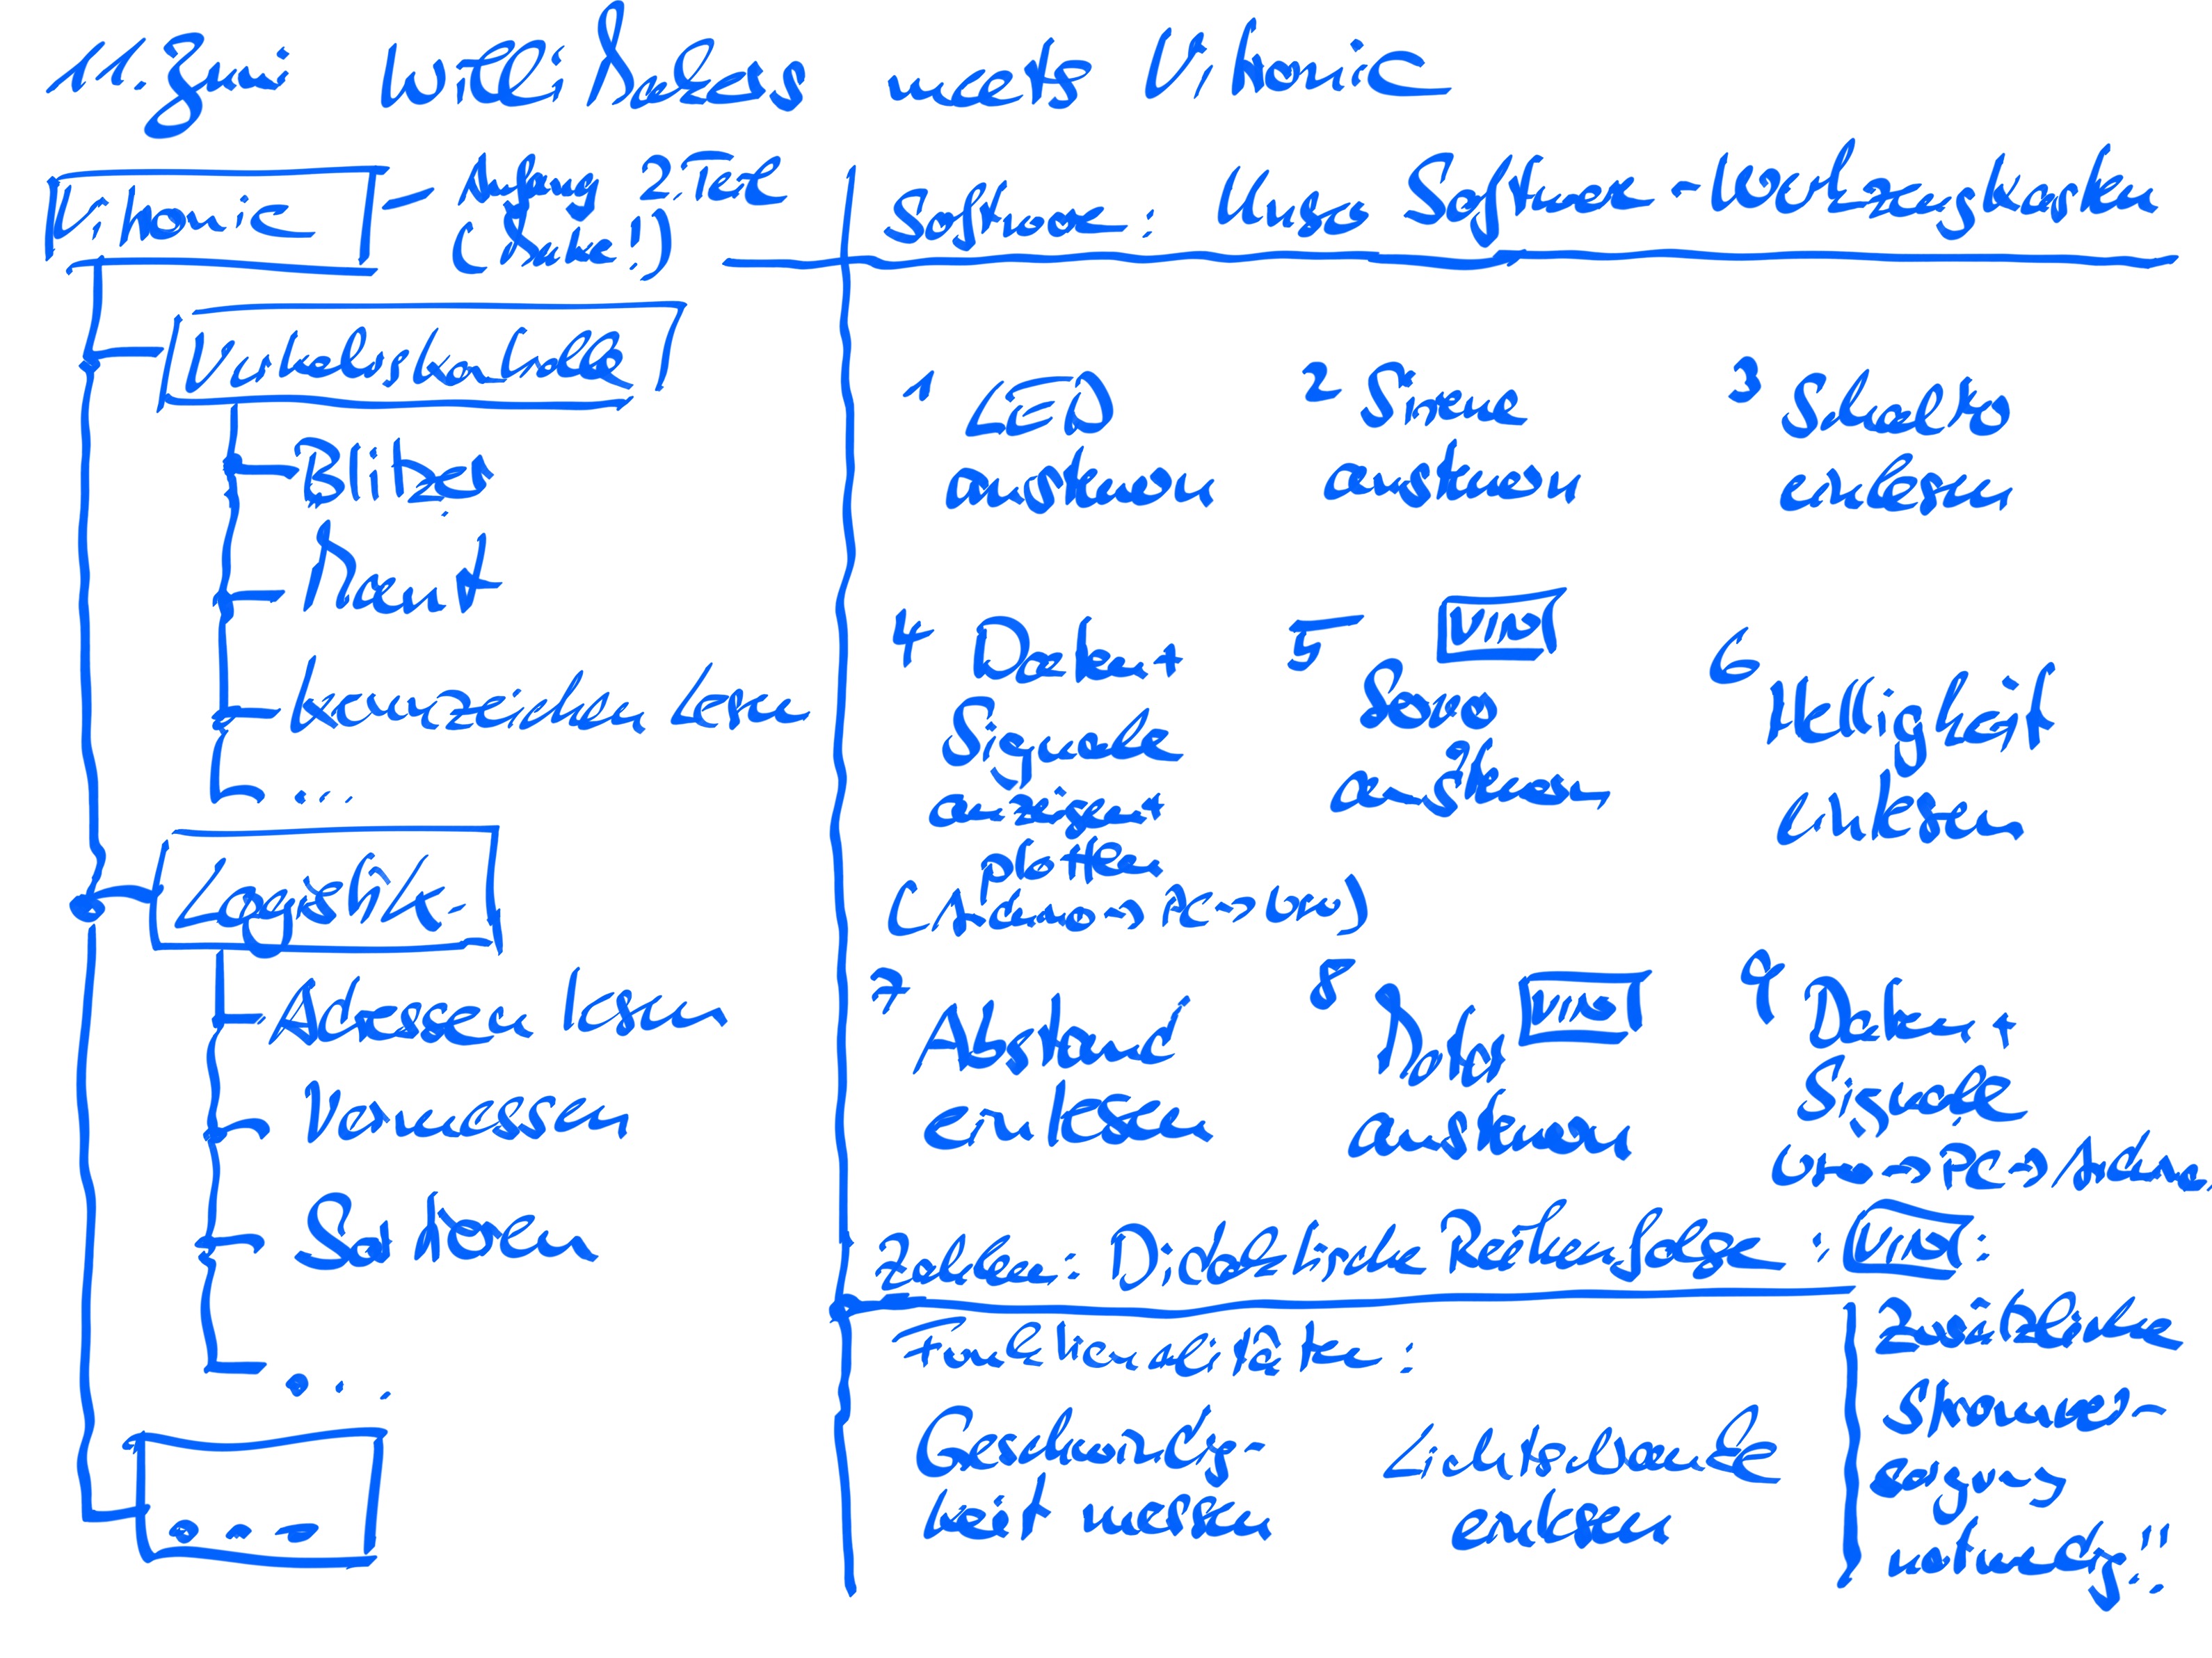 11. Juni Willi Sabers meets Vi tronic
Vitronic - Anfang 2. Teil
(Suite!)
Verkehrskontrolle
Blitzer
Maut
Kennzeichen Lesen
....
Logistik
Adressen lesen
Vermessen
Sortieren
...
...
Software: Unser Software-Werkzeugkasten
1 LED
ansteuern
2 Sirene
ansteuern
3 Schalter
einlesen
4 Daten +
Signale
anzeigen +
plotten
(Arduino -> PC ->
5
Servo
ansteuern
6
Helligkeit
Einlesen
7
Abstand
einlesen
8 Motor
ansteuern
9 Daten +
Signale
-> PC -> Arduino
Zahlen: Didaktische Reihenfolge:
Funktionalitäten:
Geschwindig-
keit messen
Lichtschranke
einlesen
Zusätzliche
Stromver-
sorgung
notwendig!!